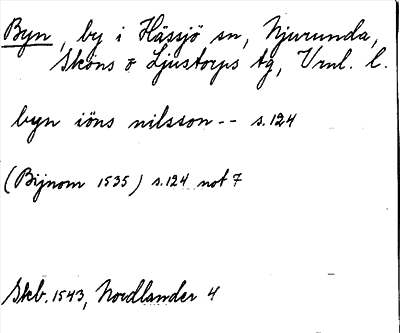 Byn, by i Hässjö sn, Njurunda,
Sköns o Ljustorps tg, Vml. l.
byn iöns nilsson -- s. 124
(Bijnom 1535) s. 124 not 7
Skb. 1543, Nordlander 4